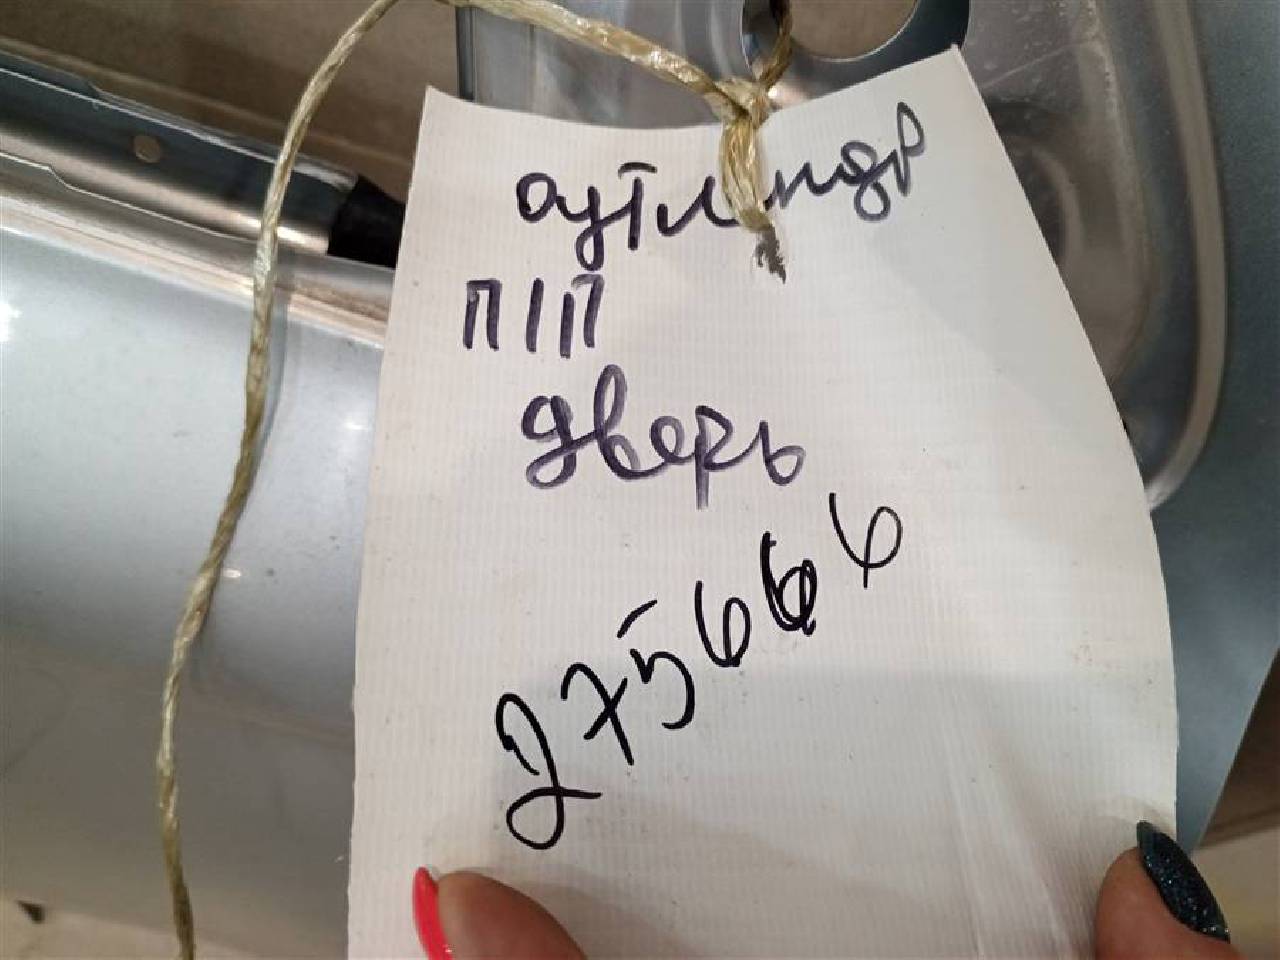 аутлендр
П/П
дверь
275666